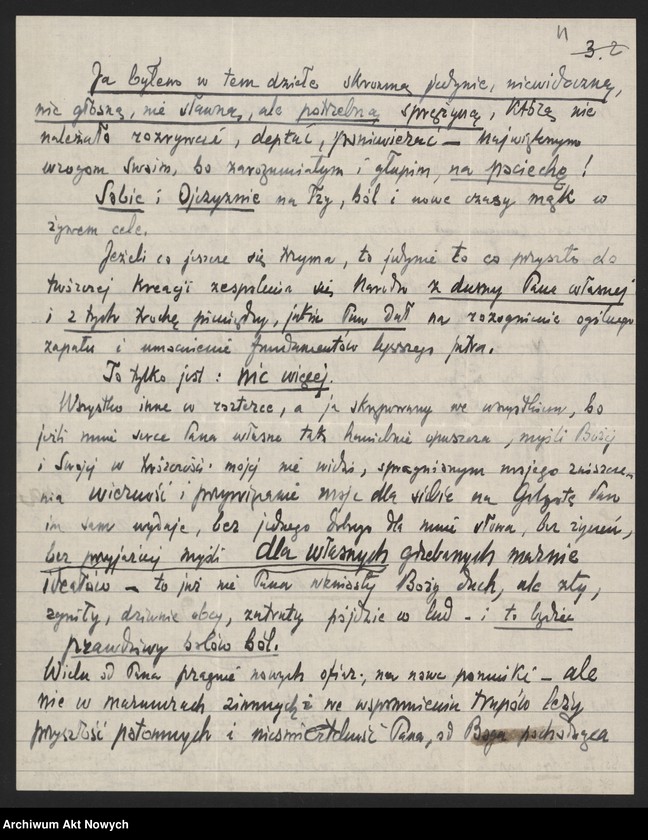 3.
Ja byłem w tem dziele skromną jedynie, niewidoczną,
nie głośną, nie sławną, ale potrzebną sprężyną, którą nie
należało rozrywać, deptać, poniewierać — największym
wrogom swoim, bo zarozumiałym i głupim, na pociechę!
Sobie i Ojczyźnie na łzy, ból i nowe czasy mąk w
żywem ciele.
Jeżeli co jeszcze się trzyma, to jedynie to co przyszło do
twórczej kreacji zespolenia się Narodu z dumy Pana własnej
i z tych trochę pieniędzy, jakie Pan dał na rozognienie ogólnego
zapału i umocnienie fundamentów lepszego jutra.
To tylko jest: nic więcej.
Wszystko inne w rozterce, a ja skrępowany we wszystkiem, bo
jeśli mnie serce Pana własne tak haniebnie opuszcza, myśli Bożej
i Swojej w twórczości mojej nie widzi, spragnionym mojego zniszcze-
nia wierność i przywiązanie moje dla siebie na Golgotę Pan
im sam wydaje, bez jednego dobrego dla mnie słowa, bez życzeń,
bez przyjaznej myśli dla własnych grzebanych marnie
ideałów — to już nie Pana wzniosły Boży duch, ale zły,
zgniły, dziwnie obcy, zatruty pójdzie w lud - i to będzie
prawdziwy bolów ból.
Wielu od Pana pragnie nowych ofiar, na nowe pomniki - ale
nie w marmurach zimnych i we wspomnieniu trupów leży
przyszłość potomnych i nieśmiertelność Pana, od Boga pochodząca
Archiwum Akt Nowych